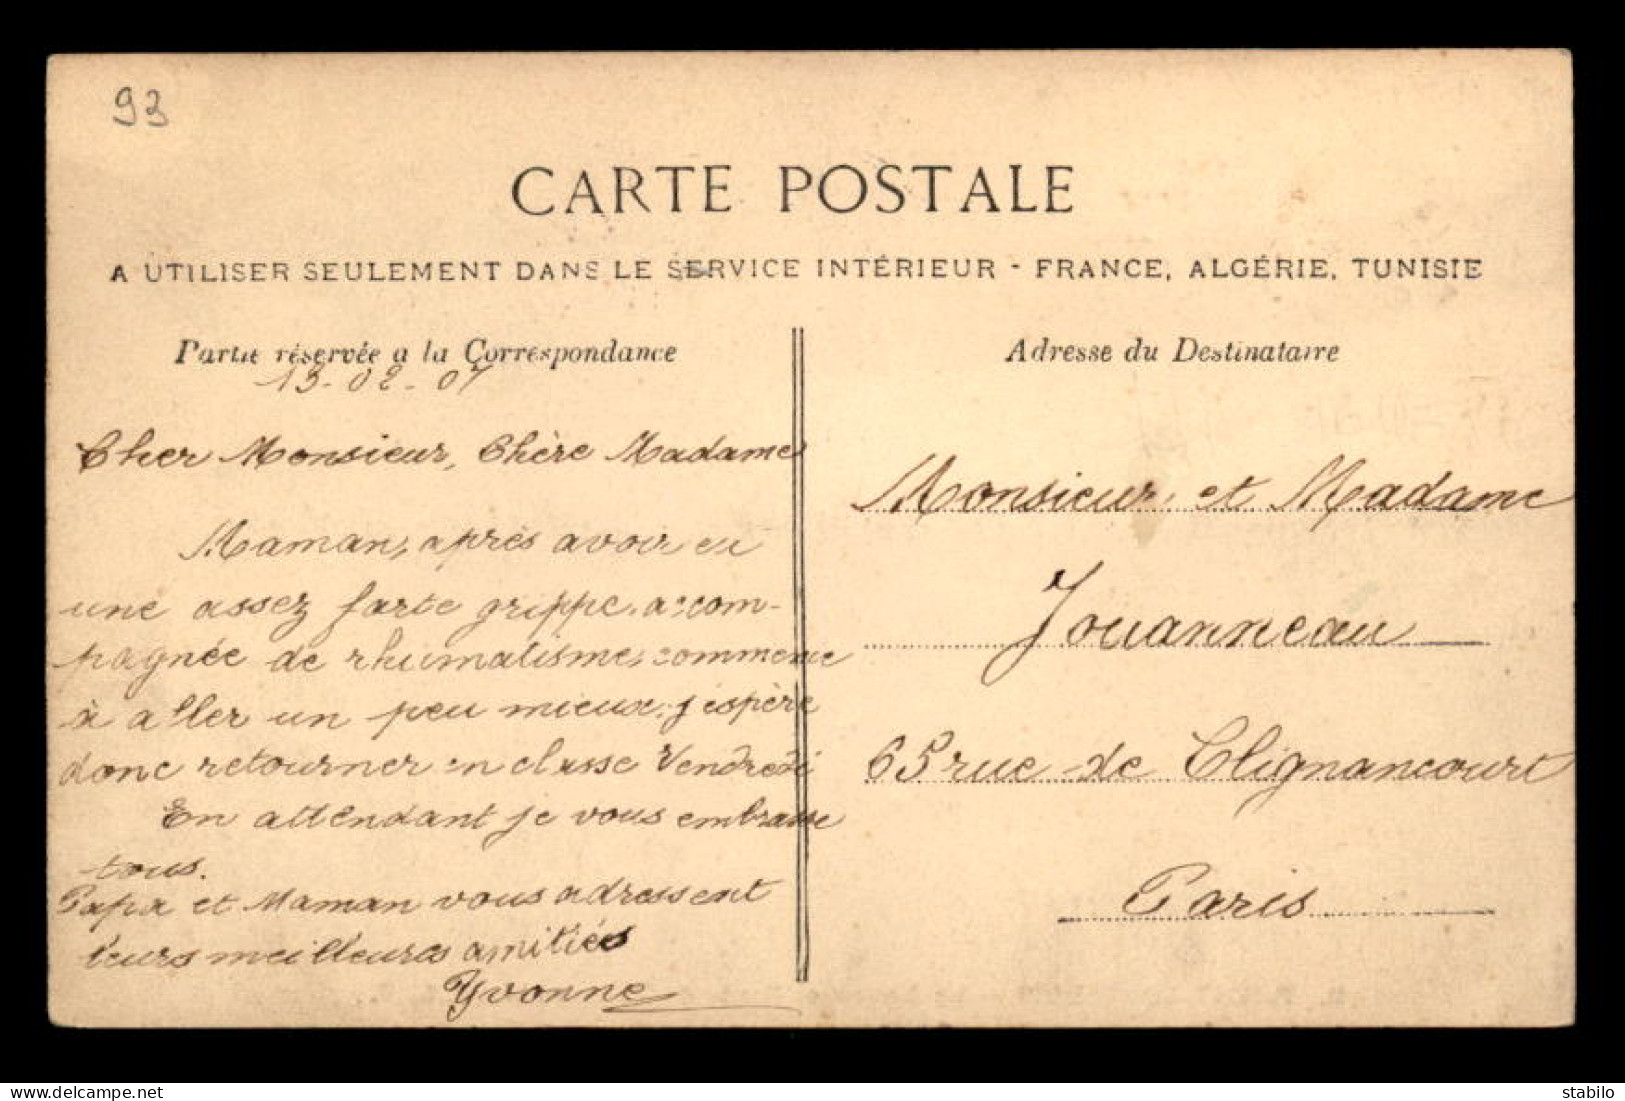 93
CARTE POSTALE
A UTILISER SEULEMENT DANS LE SERVICE INTÉRIEUR - FRANCE, ALGÉRIE, TUNISIE
Partie réservée a la Correspondance
13-02-07
Cher Monsieur, Chère Madame
Maman, après avoir eu
une assez forte grippe, accom-
pagnée de rhumatisme, commence
à aller un peu mieux, j'espère
donc retourner en classe Vendredi
En attendant je vous embrasse
tous.
Papa et Maman vous adressent
leurs meilleures amitiés
Yvonne
Adresse du Destinataire
Monsieur et Madame
Jouanneau
65 rue de Clignancourt
Paris
delcampe.net
stabilo